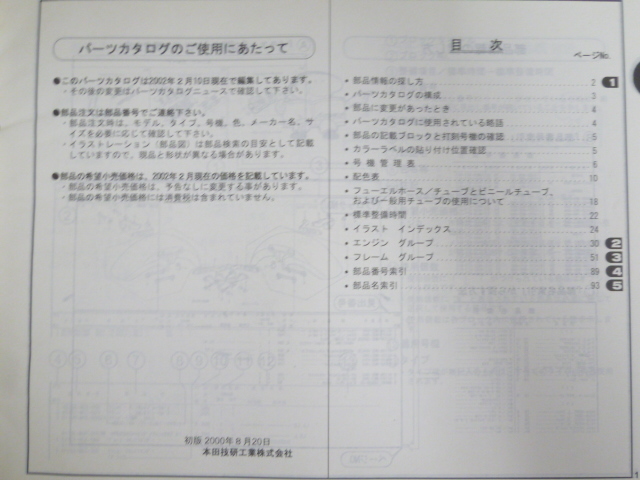 パーツカタログのご使用にあたって
●このパーツカタログは2002年2月10日現在で編集してあります。
・その後の変更はパーツカタログニュースで確認して下さい。
●部品注文は部品番号でご連絡下さい。
・部品注文時は、モデル、タイプ、号機、色、メーカー名、サ
イズを必要に応じて確認して下さい。
・イラストレーション（部品図）は部品検索の目安として記載
していますので、現品と形状が異なる場合があります。
●部品の希望小売価格は、2002年2月現在の価格を記載しています。
・部品の希望小売価格は、予告なしに変更する事があります。
・部品の希望小売価格には消費税は含まれていません。
初版 2000年8月20日
本田技研工業株式会社
目 次
ページNo.
• 部品情報の探し方 2 1
• パーツカタログの構成 3
• 部品に変更があったとき 4
• パーツカタログに使用されている略語 4
• 部品の記載ブロックと打刻号機の確認 5
• カラーラベルの貼り付け位置確認 5
• 号 機 管 理 表 6
• 配色表 10
• フューエルホース／チューブとビニールチューブ、
および一般用チューブの使用について 18
• 標準整備時間 22
• イラスト インデックス 24
• エンジン グループ 30 2
• フレーム グループ 51 3
• 部品番号索引 89 4
• 部品名索引 93 5
1